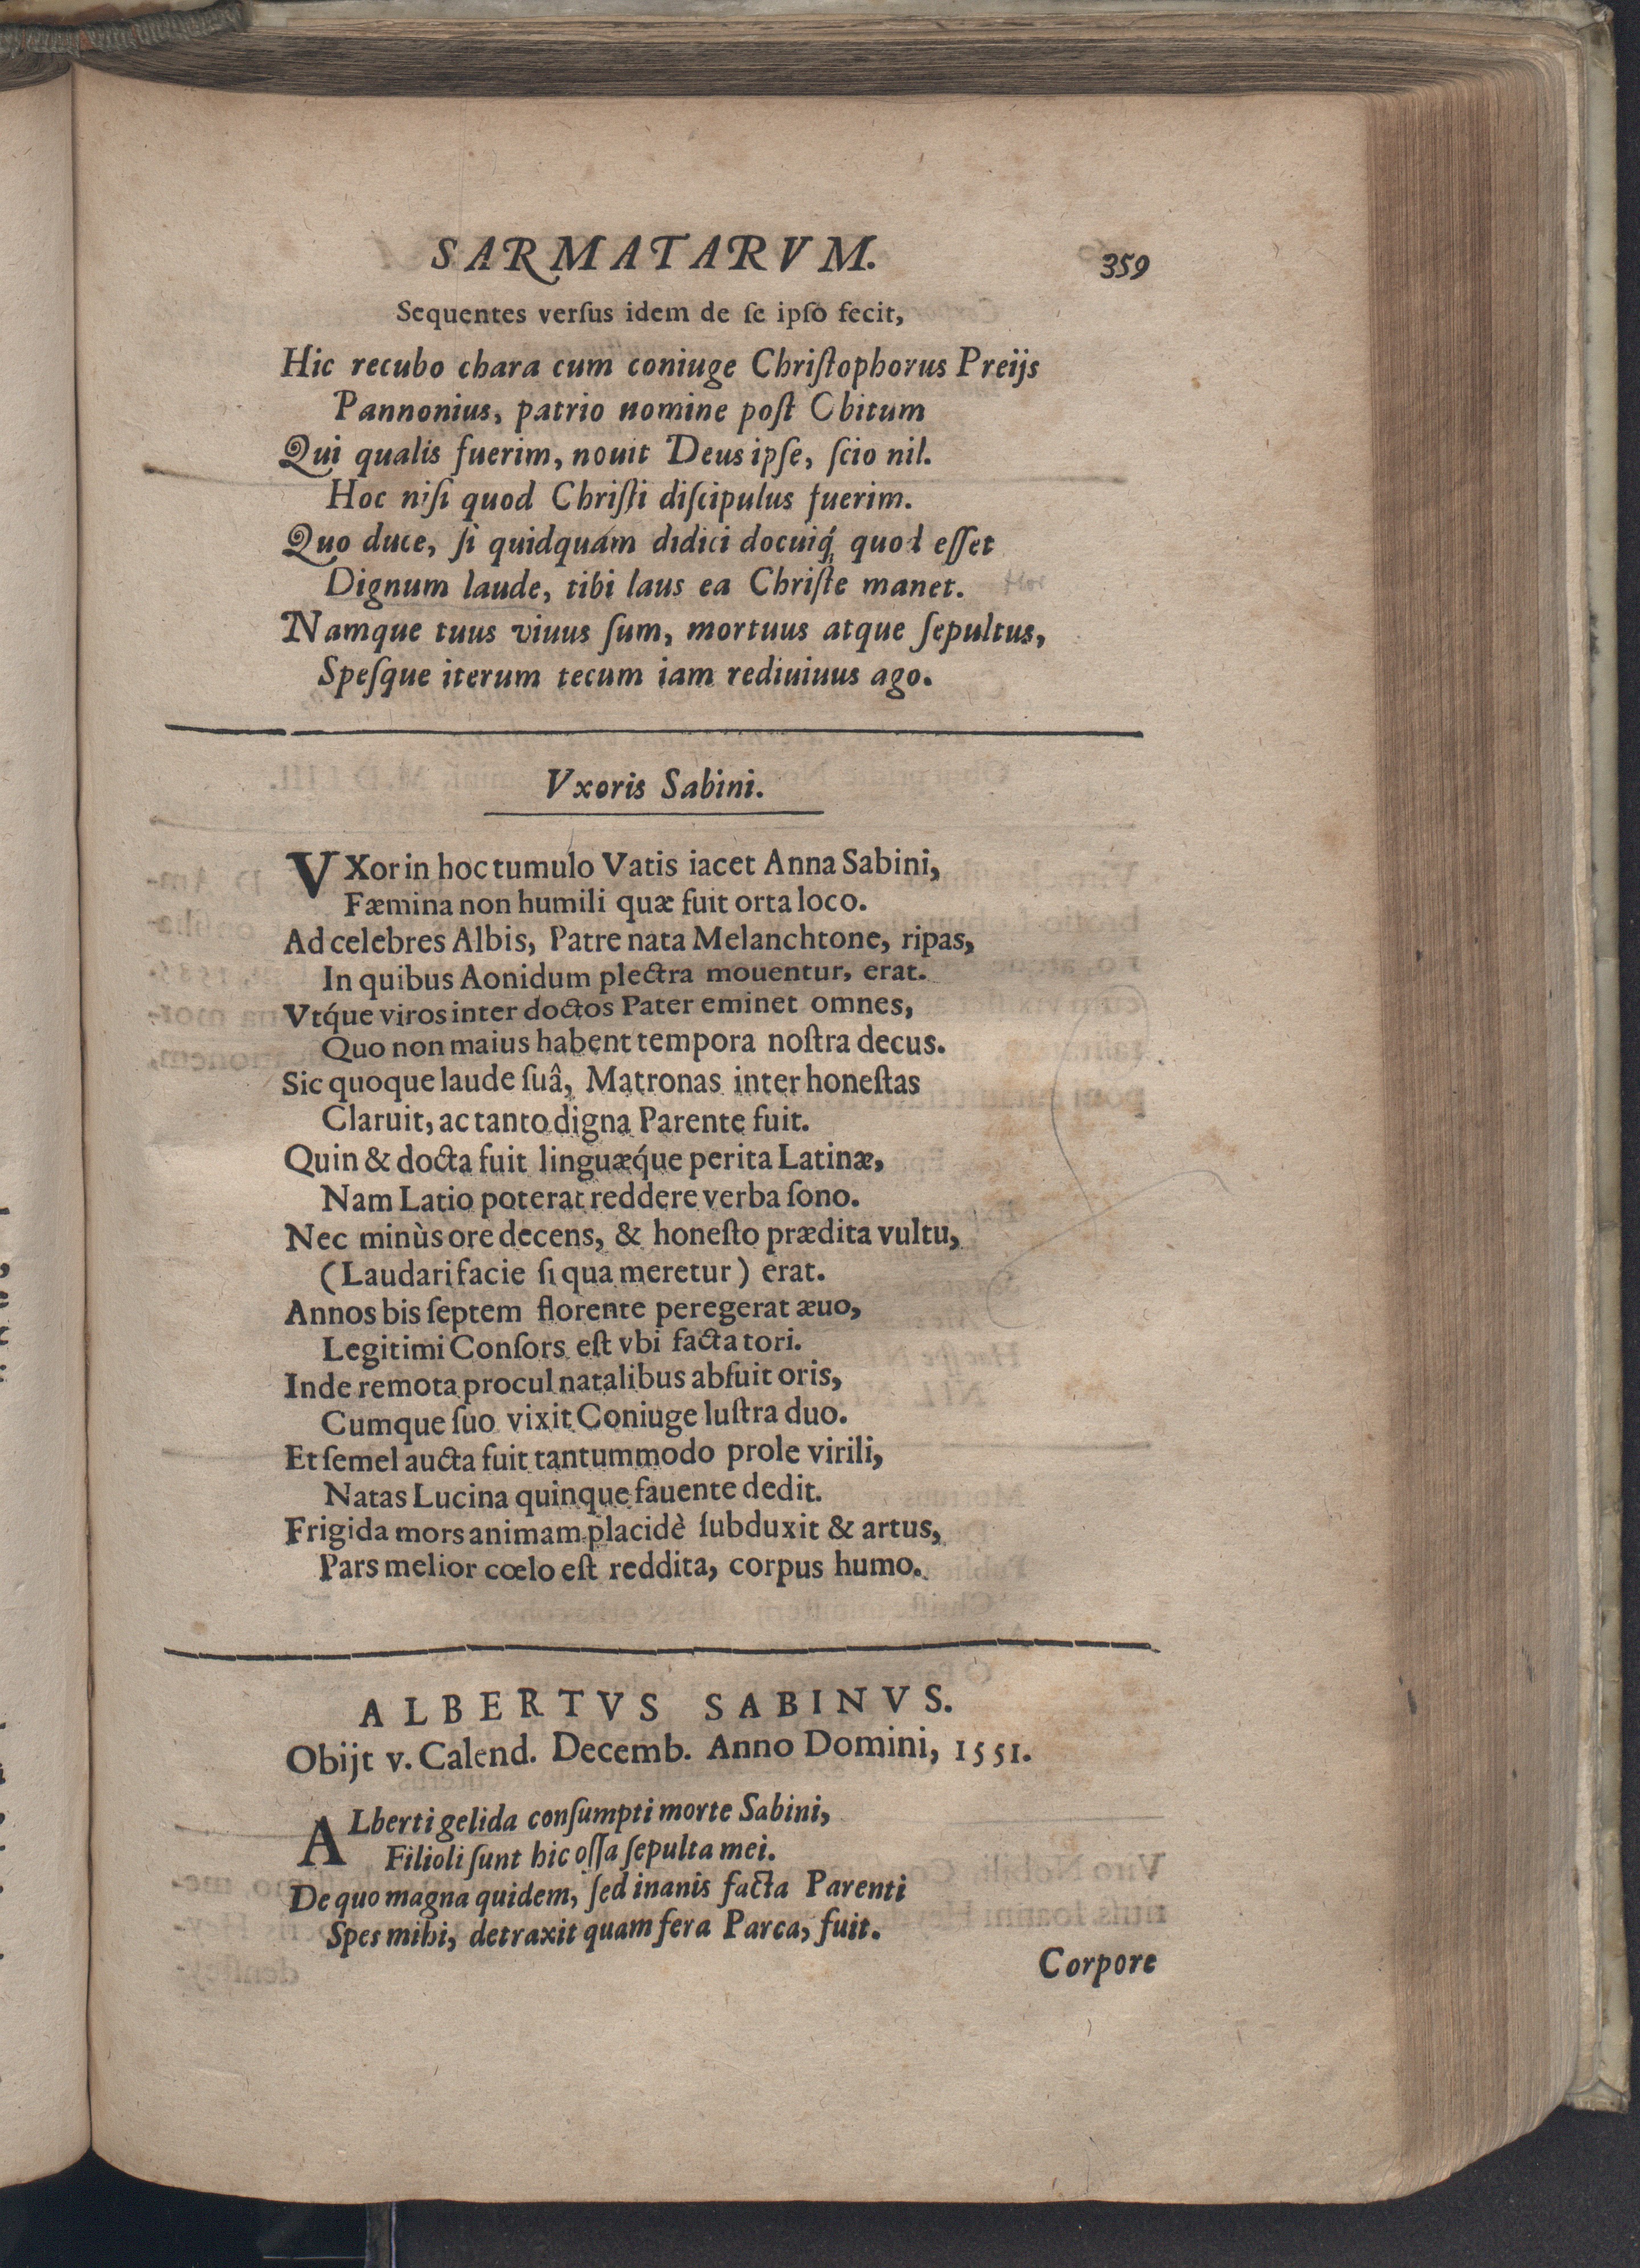 SARMATARVM.
359
Sequentes verſus idem de ſe ipſo fecit,
Hic recubo chara cum coniuge Chriſtophorus Preijs
Pannonius, patrio nomine poſt Obitum
Qui qualis fuerim, nouit Deus ipſe, ſcio nil.
Hoc niſi quod Chriſti diſcipulus fuerim.
Quo duce, ſi quidquam didici docuiq́; quod eſſet
Dignum laude, tibi laus ea Chriſte manet.
Namque tuus viuus ſum, mortuus atque ſepultus,
Speſque iterum tecum iam rediuiuus ago.
Vxoris Sabini.
VXor in hoc tumulo Vatis iacet Anna Sabini,
Fæmina non humili quæ fuit orta loco.
Ad celebres Albis, Patre nata Melanchtone, ripas,
In quibus Aonidum plectra mouentur, erat.
Vtq́ue viros inter doctos Pater eminet omnes,
Quo non maius habent tempora noſtra decus.
Sic quoque laude ſuâ, Matronas inter honeſtas
Claruit, ac tanto digna Parente fuit.
Quin & docta fuit linguæq́ue perita Latinæ,
Nam Latio poterat reddere verba ſono.
Nec minùs ore decens, & honeſto prædita vultu,
(Laudari facie ſi qua meretur) erat.
Annos bis ſeptem florente peregerat æuo,
Legitimi Conſors eſt vbi facta tori.
Inde remota procul natalibus abfuit oris,
Cumque ſuo vixit Coniuge luſtra duo.
Et ſemel aucta fuit tantummodo prole virili,
Natas Lucina quinque fauente dedit.
Frigida mors animam placidè ſubduxit & artus,
Pars melior cœlo eſt reddita, corpus humo.
ALBERTVS SABINVS.
Obijt v. Calend. Decemb. Anno Domini, 1551.
ALberti gelida conſumpti morte Sabini,
Filioli ſunt hic oſſa ſepulta mei.
De quo magna quidem, ſed inanis facta Parenti
Spes mihi, detraxit quam fera Parca, fuit.
Corpore